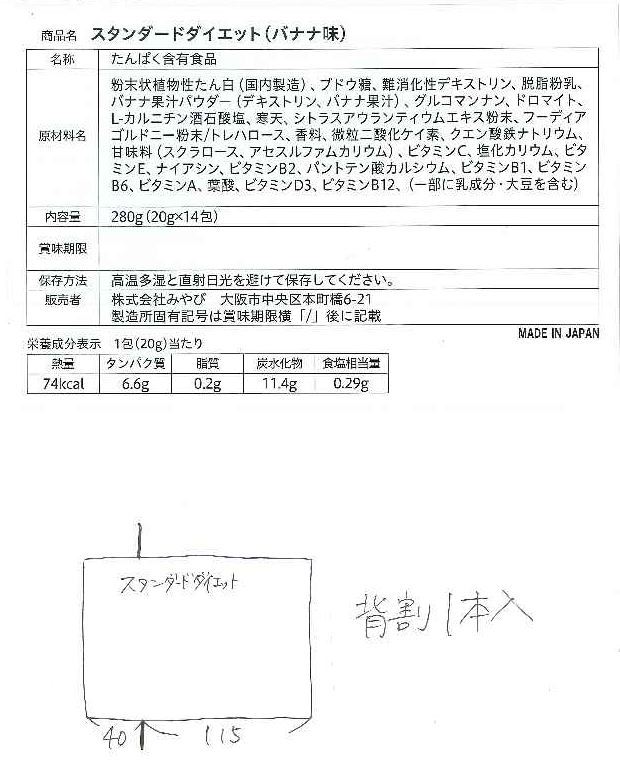 商品名 スタンダードダイエット(バナナ味)
名称 たんぱく含有食品
原材料名 粉末状植物性たん白(国内製造)、ブドウ糖、難消化性デキストリン、脱脂粉乳、
バナナ果汁パウダー(デキストリン、バナナ果汁)、グルコマンナン、ドロマイト、
L-カルニチン酒石酸塩、寒天、シトラスアウランティウムエキス粉末、フーディア
ゴルドニー粉末/トレハロース、香料、微粒二酸化ケイ素、クエン酸鉄ナトリウム、
甘味料(スクラロース、アセスルファムカリウム)、ビタミンC、塩化カリウム、ビタ
ミンE、ナイアシン、ビタミンB2、パントテン酸カルシウム、ビタミンB1、ビタミン
B6、ビタミンA、葉酸、ビタミンD3、ビタミンB12、(一部に乳成分・大豆を含む)
内容量 280g(20g×14包)
賞味期限
保存方法 高温多湿と直射日光を避けて保存してください。
販売者 株式会社みやび 大阪市中央区本町橋6-21
製造所固有記号は賞味期限横「/」後に記載
MADE IN JAPAN
栄養成分表示 1包(20g)当たり
熱量 タンパク質 脂質 炭水化物 食塩相当量
74kcal 6.6g 0.2g 11.4g 0.29g
スタンダードダイエット
背割1本入
40 115